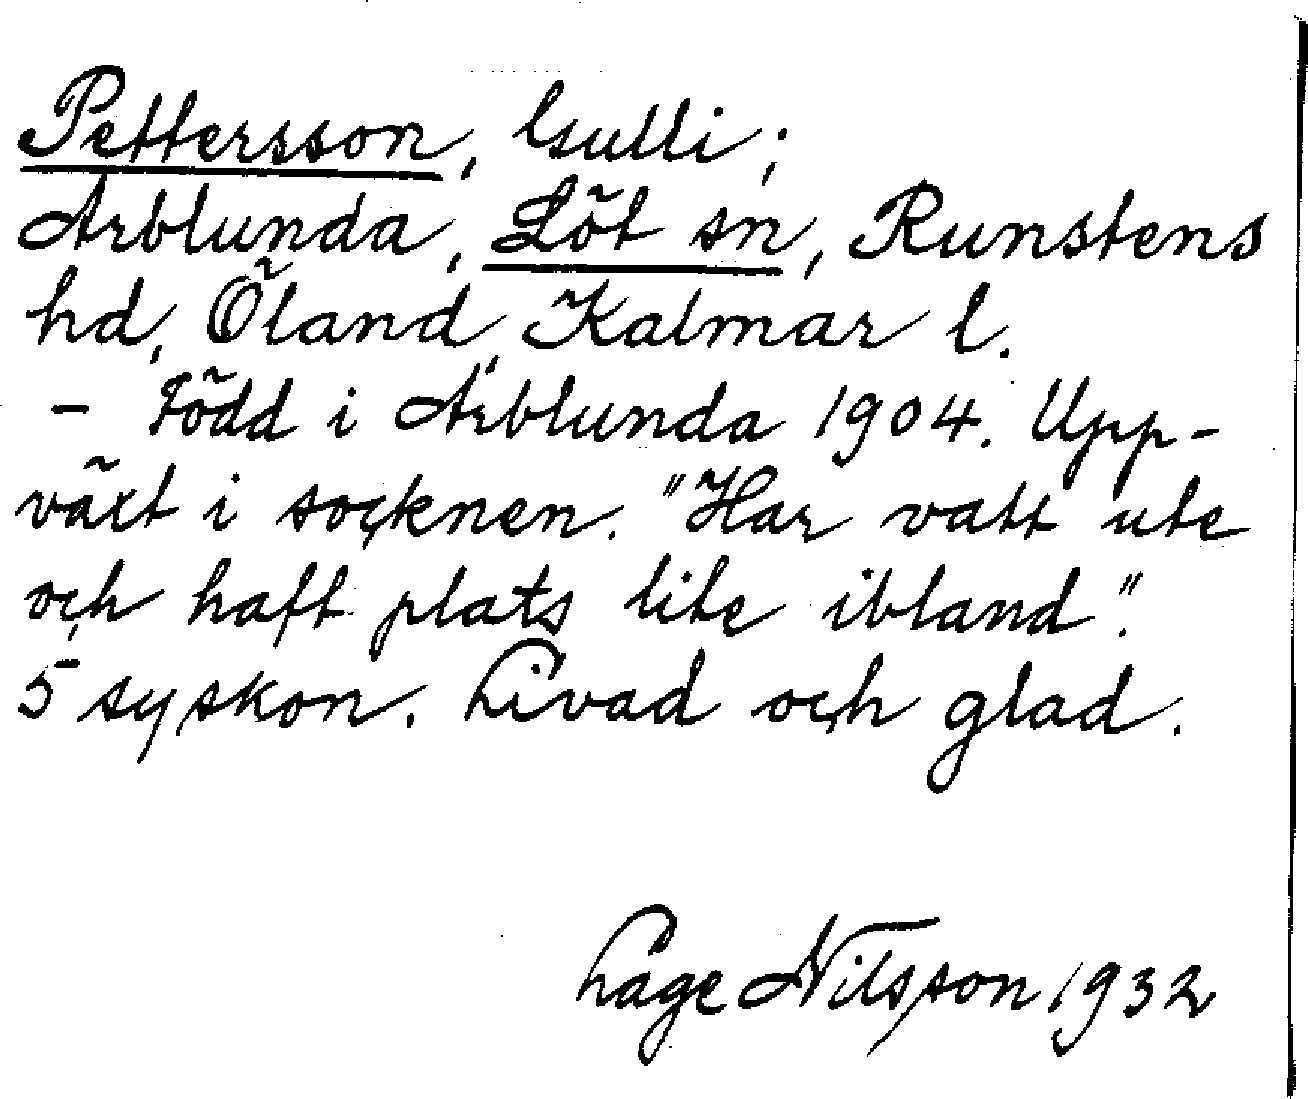 Pettersson, Gulli;
Arblunda, Löt sn, Runstens
hd, Öland, Kalmar l.
- Född i Arblunda 1904. Upp-
växt i socknen. "Har vatt ute
och haft plats lite ibland".
5 syskon. Livad och glad.
Lage Nilsson 1932